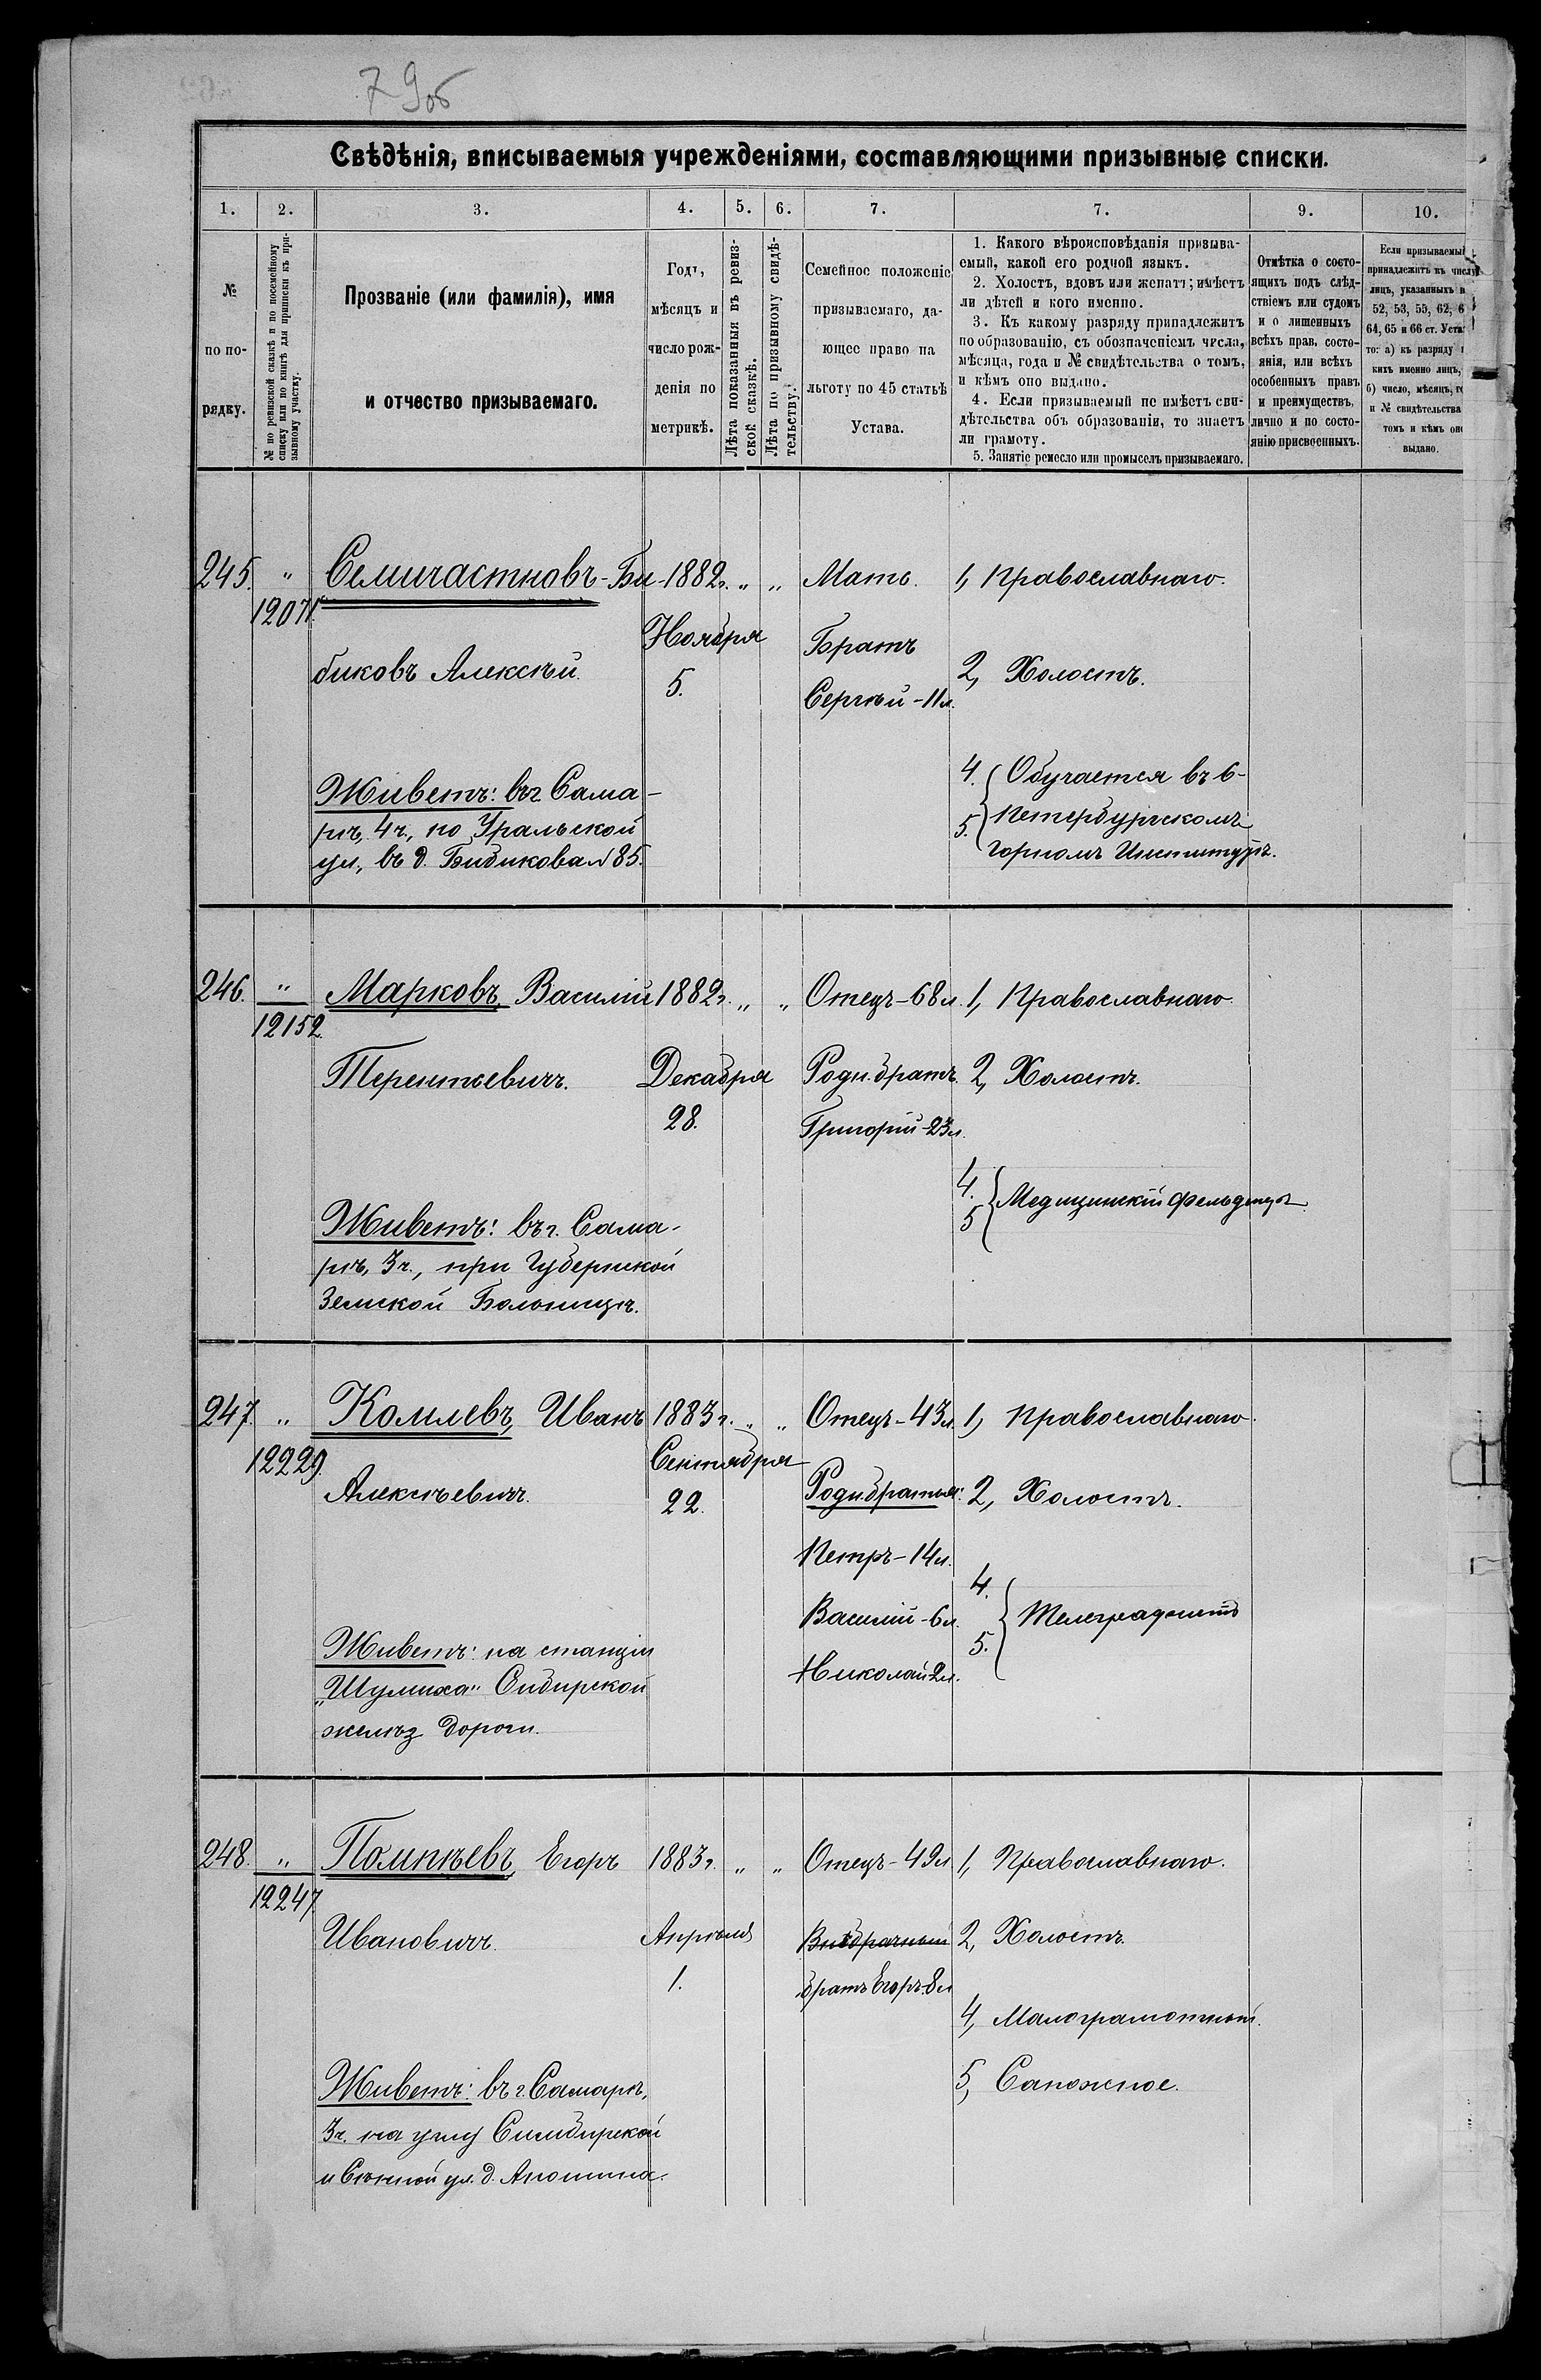 79об
Свѣдѣнія, вписываемыя учрежденіями, составляющими призывные списки.
1. 2. 3. 4. 5. 6. 7. 7. 9. 10.
№
по по-
рядку.
№ по ревизской сказкѣ и по посемейному
списку или по книгѣ для приписки къ при-
зывному участку.
Прозваніе (или фамилія), имя
и отчество призываемаго.
Годъ,
мѣсяцъ и
число рож-
денія по
метрикѣ.
Лѣта показанныя въ ревиз-
ской сказкѣ.
Лѣта по призывному свидѣ-
тельству.
Семейное положеніе
призываемаго, да-
ющее право на
льготу по 45 статьѣ
Устава.
1. Какого вѣроисповѣданія призыва-
емый, какой его родной языкъ.
2. Холостъ, вдовъ или женатъ; имѣетъ
ли дѣтей и кого именно.
3. Къ какому разряду принадлежитъ
по образованію, съ обозначеніемъ числа,
мѣсяца, года и № свидѣтельства о томъ,
и кѣмъ оно выдано.
4. Если призываемый не имѣетъ сви-
дѣтельства объ образованіи, то знаетъ
ли грамоту.
5. Занятіе ремесло или промыселъ призываемаго.
Отмѣтка о состо-
ящихъ подъ слѣд-
ствіемъ или судомъ
и о лишенныхъ
всѣхъ прав, состо-
янія, или всѣхъ
особенныхъ правъ
и преимуществъ,
лично и по состо-
янію присвоенныхъ.
Если призываемый
принадлежитъ къ числу
лицъ, указанныхъ в
52, 53, 55, 62, 6
64, 65 и 66 ст. Уста
то: а) къ разряду
кихъ именно лицъ,
б) число, мѣсяцъ, го
и № свидѣтельства
томъ и кѣмъ оно
выдано.
245. " Семичастновъ-Би- 1882г. " " Мать. 1, Православнаго.
12071.
биковъ Алексѣй.
Ноября
5.
Братъ
Сергѣй-11л.
2, Холостъ.
Живетъ: въ г. Сама-
рѣ, 4ч., по Уральской
ул., въ д. Бибикова №85.
4.
5. Обучается въ С-
Петербургскомъ
Горномъ Институтѣ.
246. " Марковъ, Василій 1882г. " " Отецъ-68л. 1, Православнаго.
12152.
Терентьевичъ.
Декабря
28.
Родн. братъ.
Григорій-23л.
2, Холостъ.
Живетъ: въ г. Сама-
рѣ, 3ч., при Губернской
Земской Больницѣ.
4.
5 Медицинскій фельдшеръ
247. " Комлевъ, Иванъ 1883г. " " Отецъ-43л. 1, Православнаго.
12229.
Алексѣевичъ.
Сентября
22.
Родн. братья:
Петръ-14л.
Василій-6л.
Николай 2л.
2, Холостъ.
Живетъ: на станціи
„Шумиха" Сибирской
желѣз дороги.
4.
5. Телеграфистъ
248. " Помпѣевъ, Егоръ 1883г. " " Отецъ-49л 1, Православнаго.
12247.
Ивановичъ.
Апрѣля
1.
Внѣбрачный
братъ Егоръ-8л
2, Холостъ.
4, Малограмотный.
5, Сапожное.
Живетъ: въ г. Самарѣ,
3ч. на углу Симбирской
и Сѣнной ул. д. Аношина.